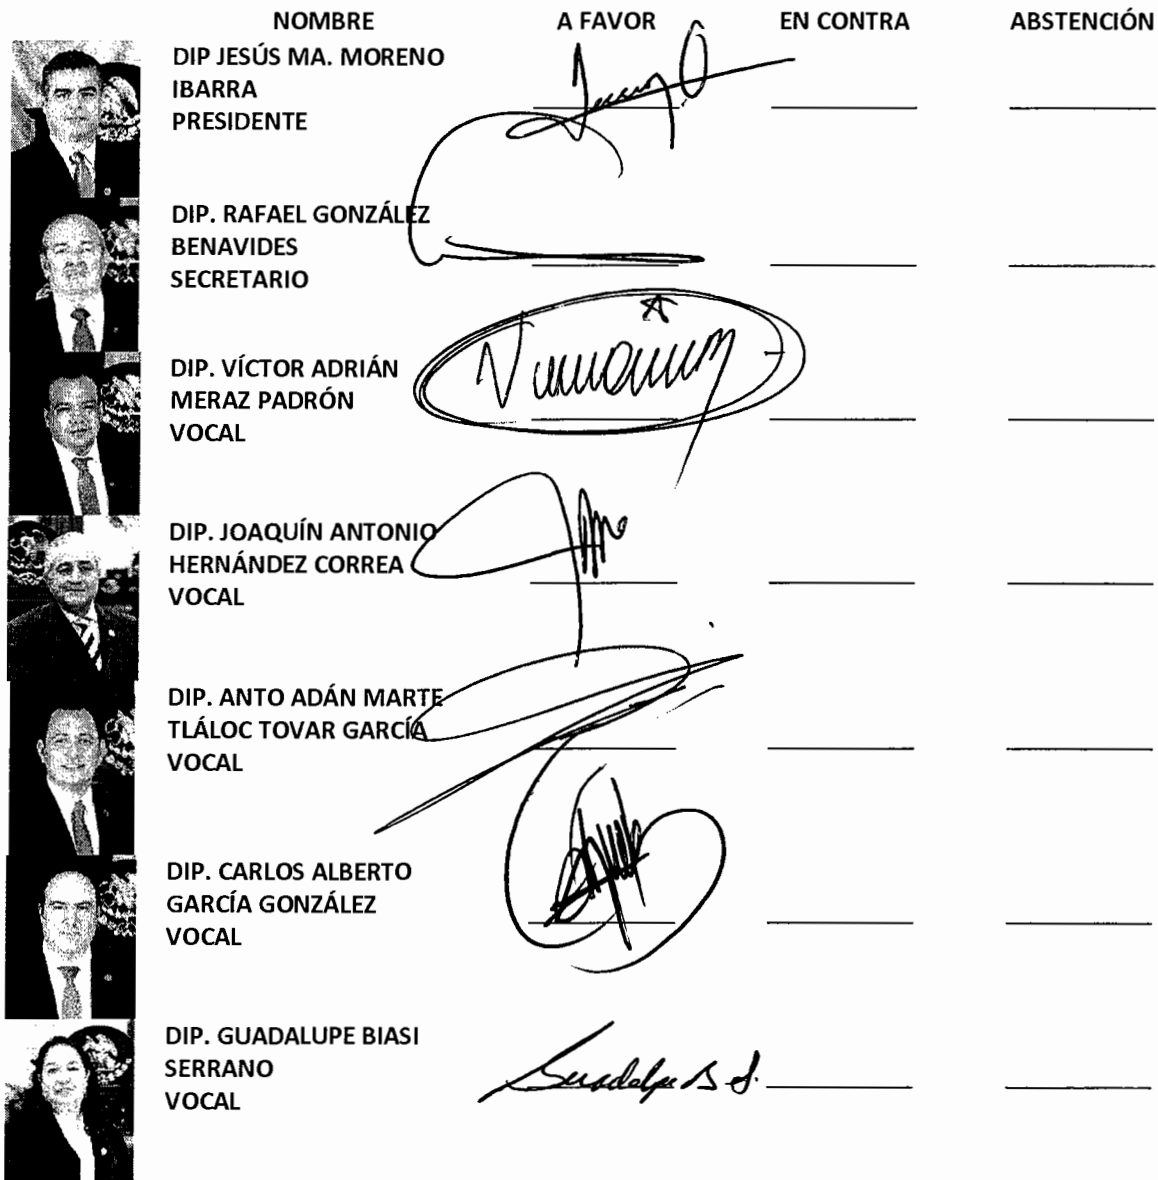 NOMBRE A FAVOR EN CONTRA ABSTENCIÓN
DIP JESÚS MA. MORENO
IBARRA
PRESIDENTE
DIP. RAFAEL GONZÁLEZ
BENAVIDES
SECRETARIO
DIP. VÍCTOR ADRIÁN
MERAZ PADRÓN
VOCAL
DIP. JOAQUÍN ANTONIO
HERNÁNDEZ CORREA
VOCAL
DIP. ANTO ADÁN MARTE
TLÁLOC TOVAR GARCÍA
VOCAL
DIP. CARLOS ALBERTO
GARCÍA GONZÁLEZ
VOCAL
DIP. GUADALUPE BIASI
SERRANO
VOCAL
Guadalupe B S.